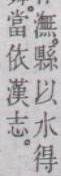 潕縣以水得
當依漢志。